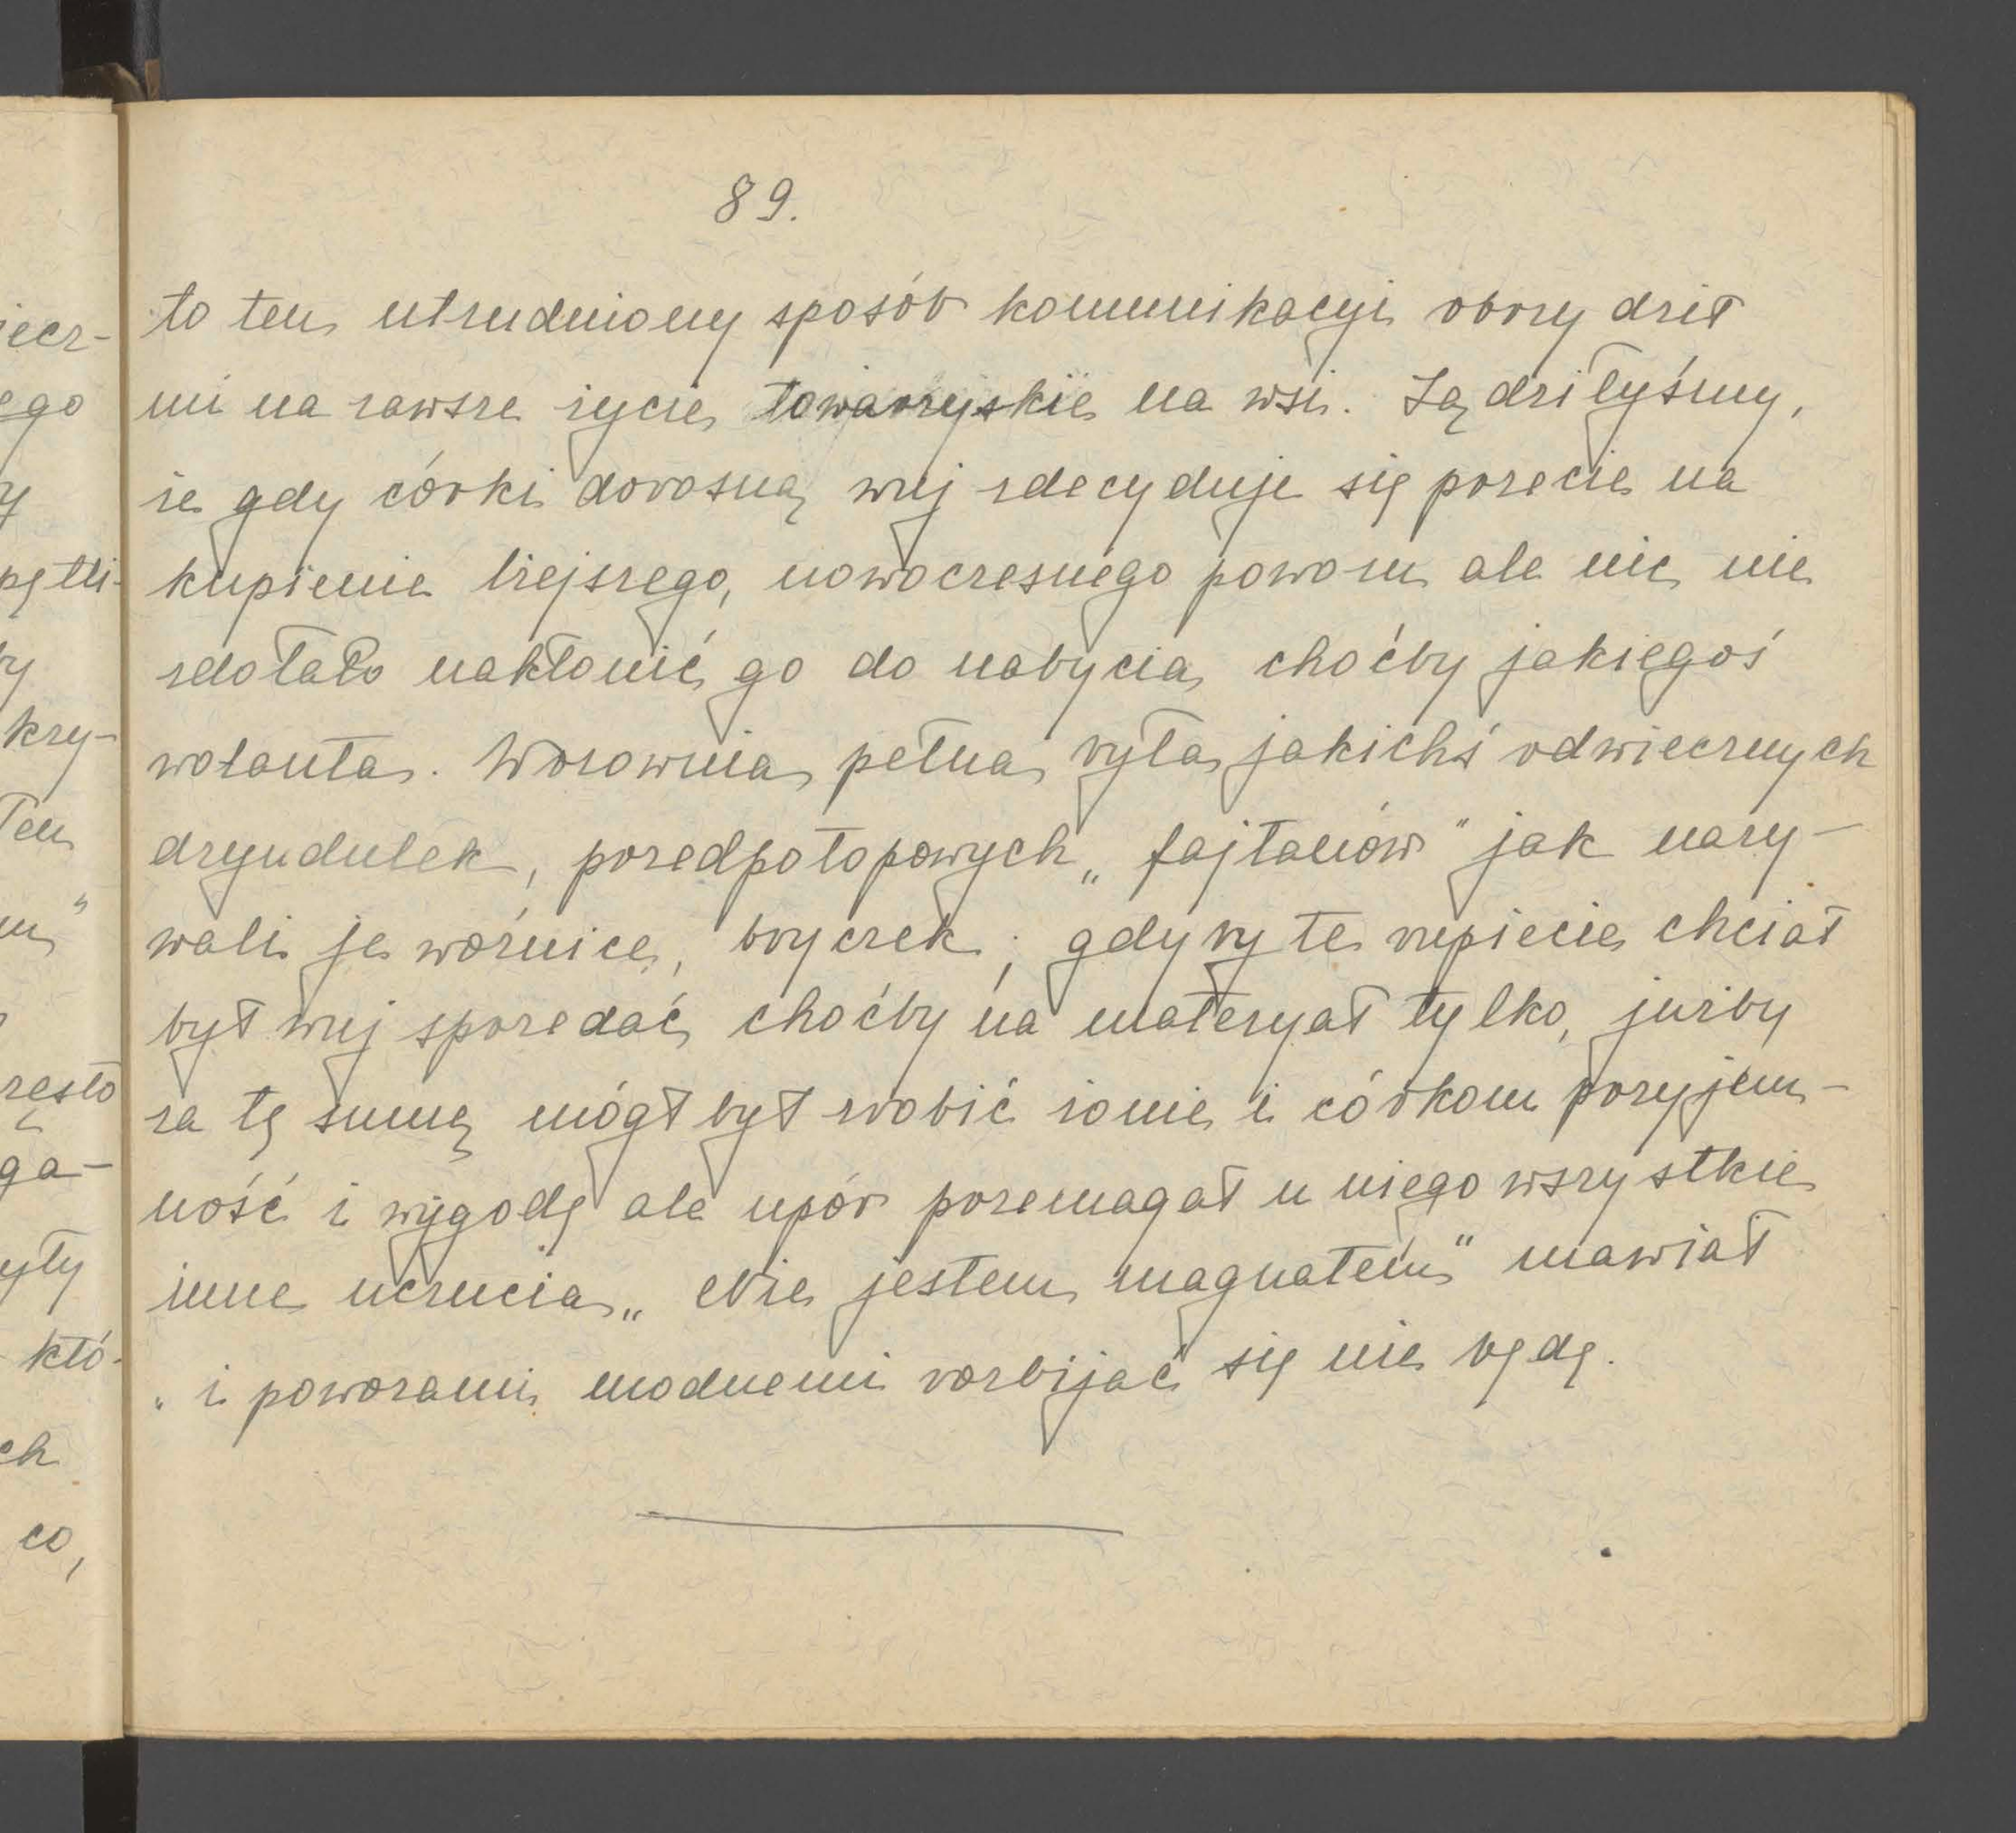 89.
to ten utrudniony sposób komunikacyi obrzydził
mi na zawsze życie towarzyskie na wsi. Sądziłyśmy,
że gdy córki dorosną wuj zdecyduje się przecie na
kupienie lżejszego, nowoczesnego powozu ale nic nie
zdołało nakłonić go do nabycia choćby jakiegoś
wolanta. Wozownia pełna była jakichś odwiecznych
dryndulek, przedpotopowych „fajtanów" jak nazy-
wali je woźnice, bryczek; gdyby te rupiecie chciał
był wuj sprzedać choćby na materyał tylko, jużby
za tę sumę mógł był zrobić żonie i córkom przyjem-
ność i wygodę ale upór przemagał u niego wszystkie
inne uczucia „Nie jestem magnatem" mawiał
„i powozami modnemi rozbijać się nie będę.
iecz-
ego
y
pętli-
by
krzy-
Ten
m"
zęsto
ga-
yły
któ-
ch
co,